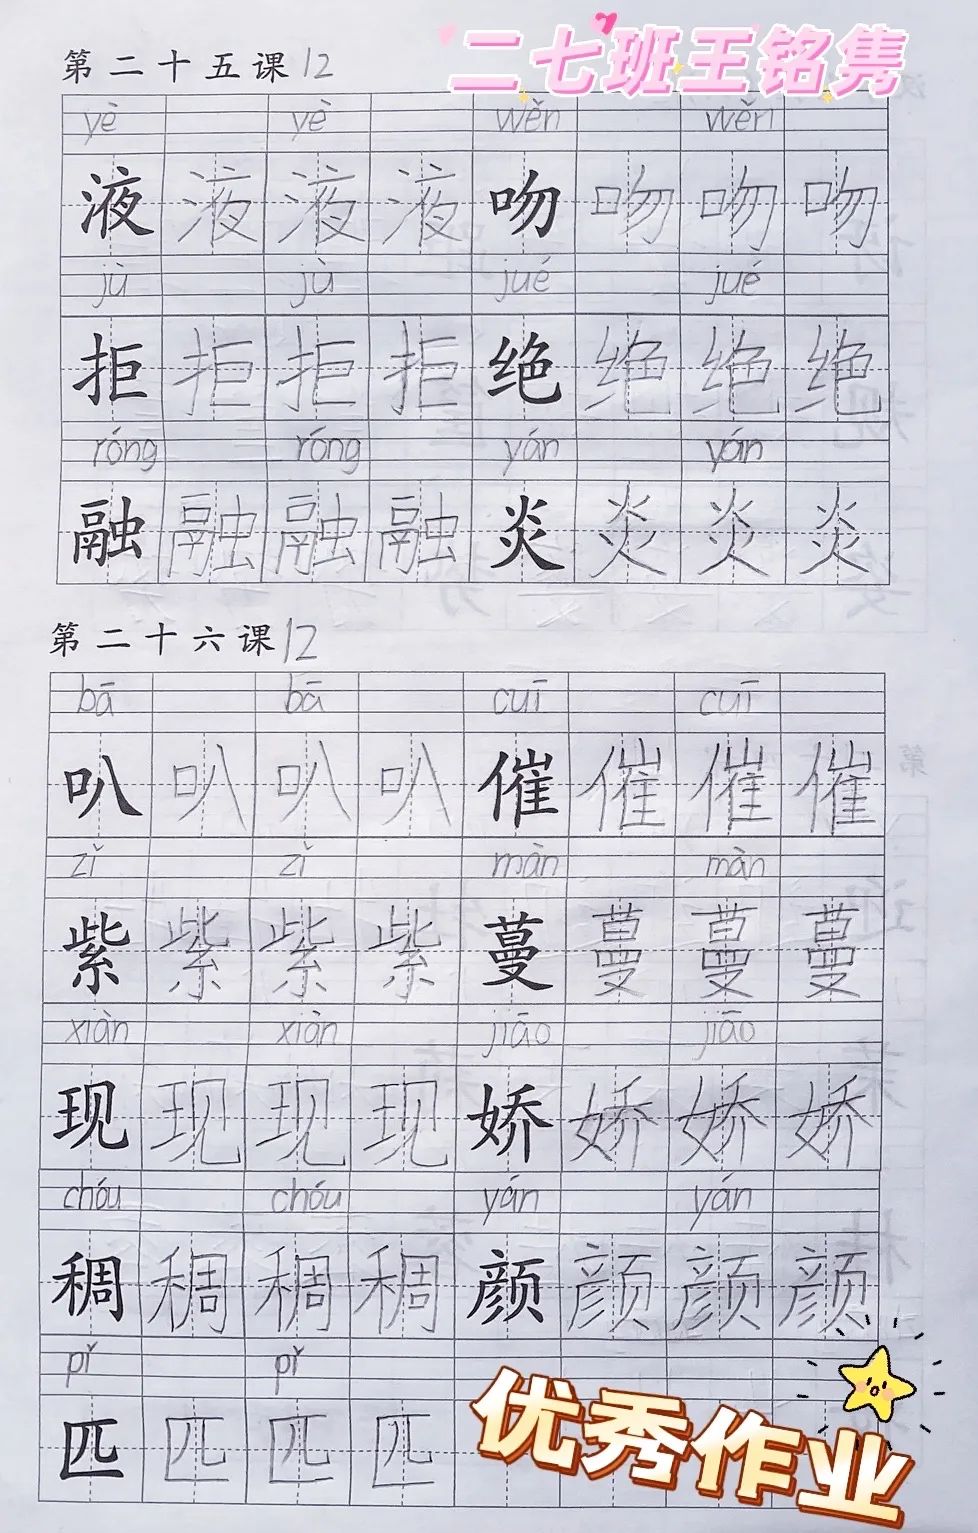 二七班王铭隽
第二十五课 12
yè yè wěn wěn
液 液 液 液 吻 吻 吻 吻
jù jù jué jué
拒 拒 拒 拒 绝 绝 绝 绝
róng róng yán yán
融 融 融 融 炎 炎 炎 炎
第二十六课 12
bā bā cuī cuī
叭 叭 叭 叭 催 催 催 催
zǐ zǐ màn màn
紫 紫 紫 紫 蔓 蔓 蔓 蔓
xiàn xiàn jiāo jiāo
现 现 现 现 娇 娇 娇 娇
chóu chóu yán yán
稠 稠 稠 稠 颜 颜 颜 颜
pǐ pǐ
匹 匹 匹 匹
优秀作业